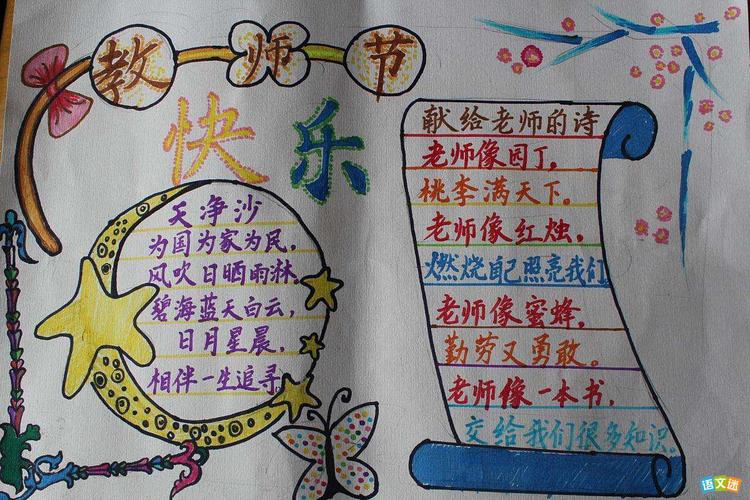 教师节
快乐
天净沙
为国为家为民，
风吹日晒雨淋。
碧海蓝天白云，
日月星晨，
相伴一生追寻。
献给老师的诗
老师像园丁，
桃李满天下。
老师像红烛，
燃烧自己照亮我们
老师像蜜蜂，
勤劳又勇敢。
老师像一本书，
交给我们很多知识。
语文迷